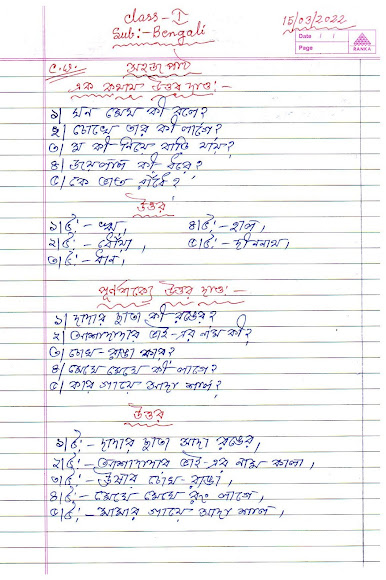 class-I
15/03/2022
Sub:-Bengali
Date / /
Page
RANKA
C.W.
সহজ পাঠ
এক কথায় উত্তর দাও:-
১| ঘন মেঘ কী বলে?
২| চোখে তার কী লাগে?
৩| সে কী নিয়ে বাড়ি যায়?
৪| জয়লাল কী ধরে?
৫| কে ভাত রাঁধে?
উত্তর
১|উ:- ঋ,
৪|উ:- হাল,
২|উ:- ধোঁয়া,
৫|উ:- দীননাথ,
৩|উ:- ধান,
পূর্ণবাক্যে উত্তর দাও:-
১| দাদার ছাতা কী রঙের?
২| আশাদাদার ভাই-এর নাম কী?
৩| চোখ-রাঙা কার?
৪| মেঘে মেঘে কী লাগে?
৫| কার গায়ে সাদা শাল?
উত্তর
১|উ:- দাদার ছাতা সাদা রঙের,
২|উ:- আশাদাদার ভাই-এর নাম কালা,
৩|উ:- উষার চোখ-রাঙা,
৪|উ:- মেঘে মেঘে রং লাগে,
৫|উ:- মামার গায়ে সাদা শাল,